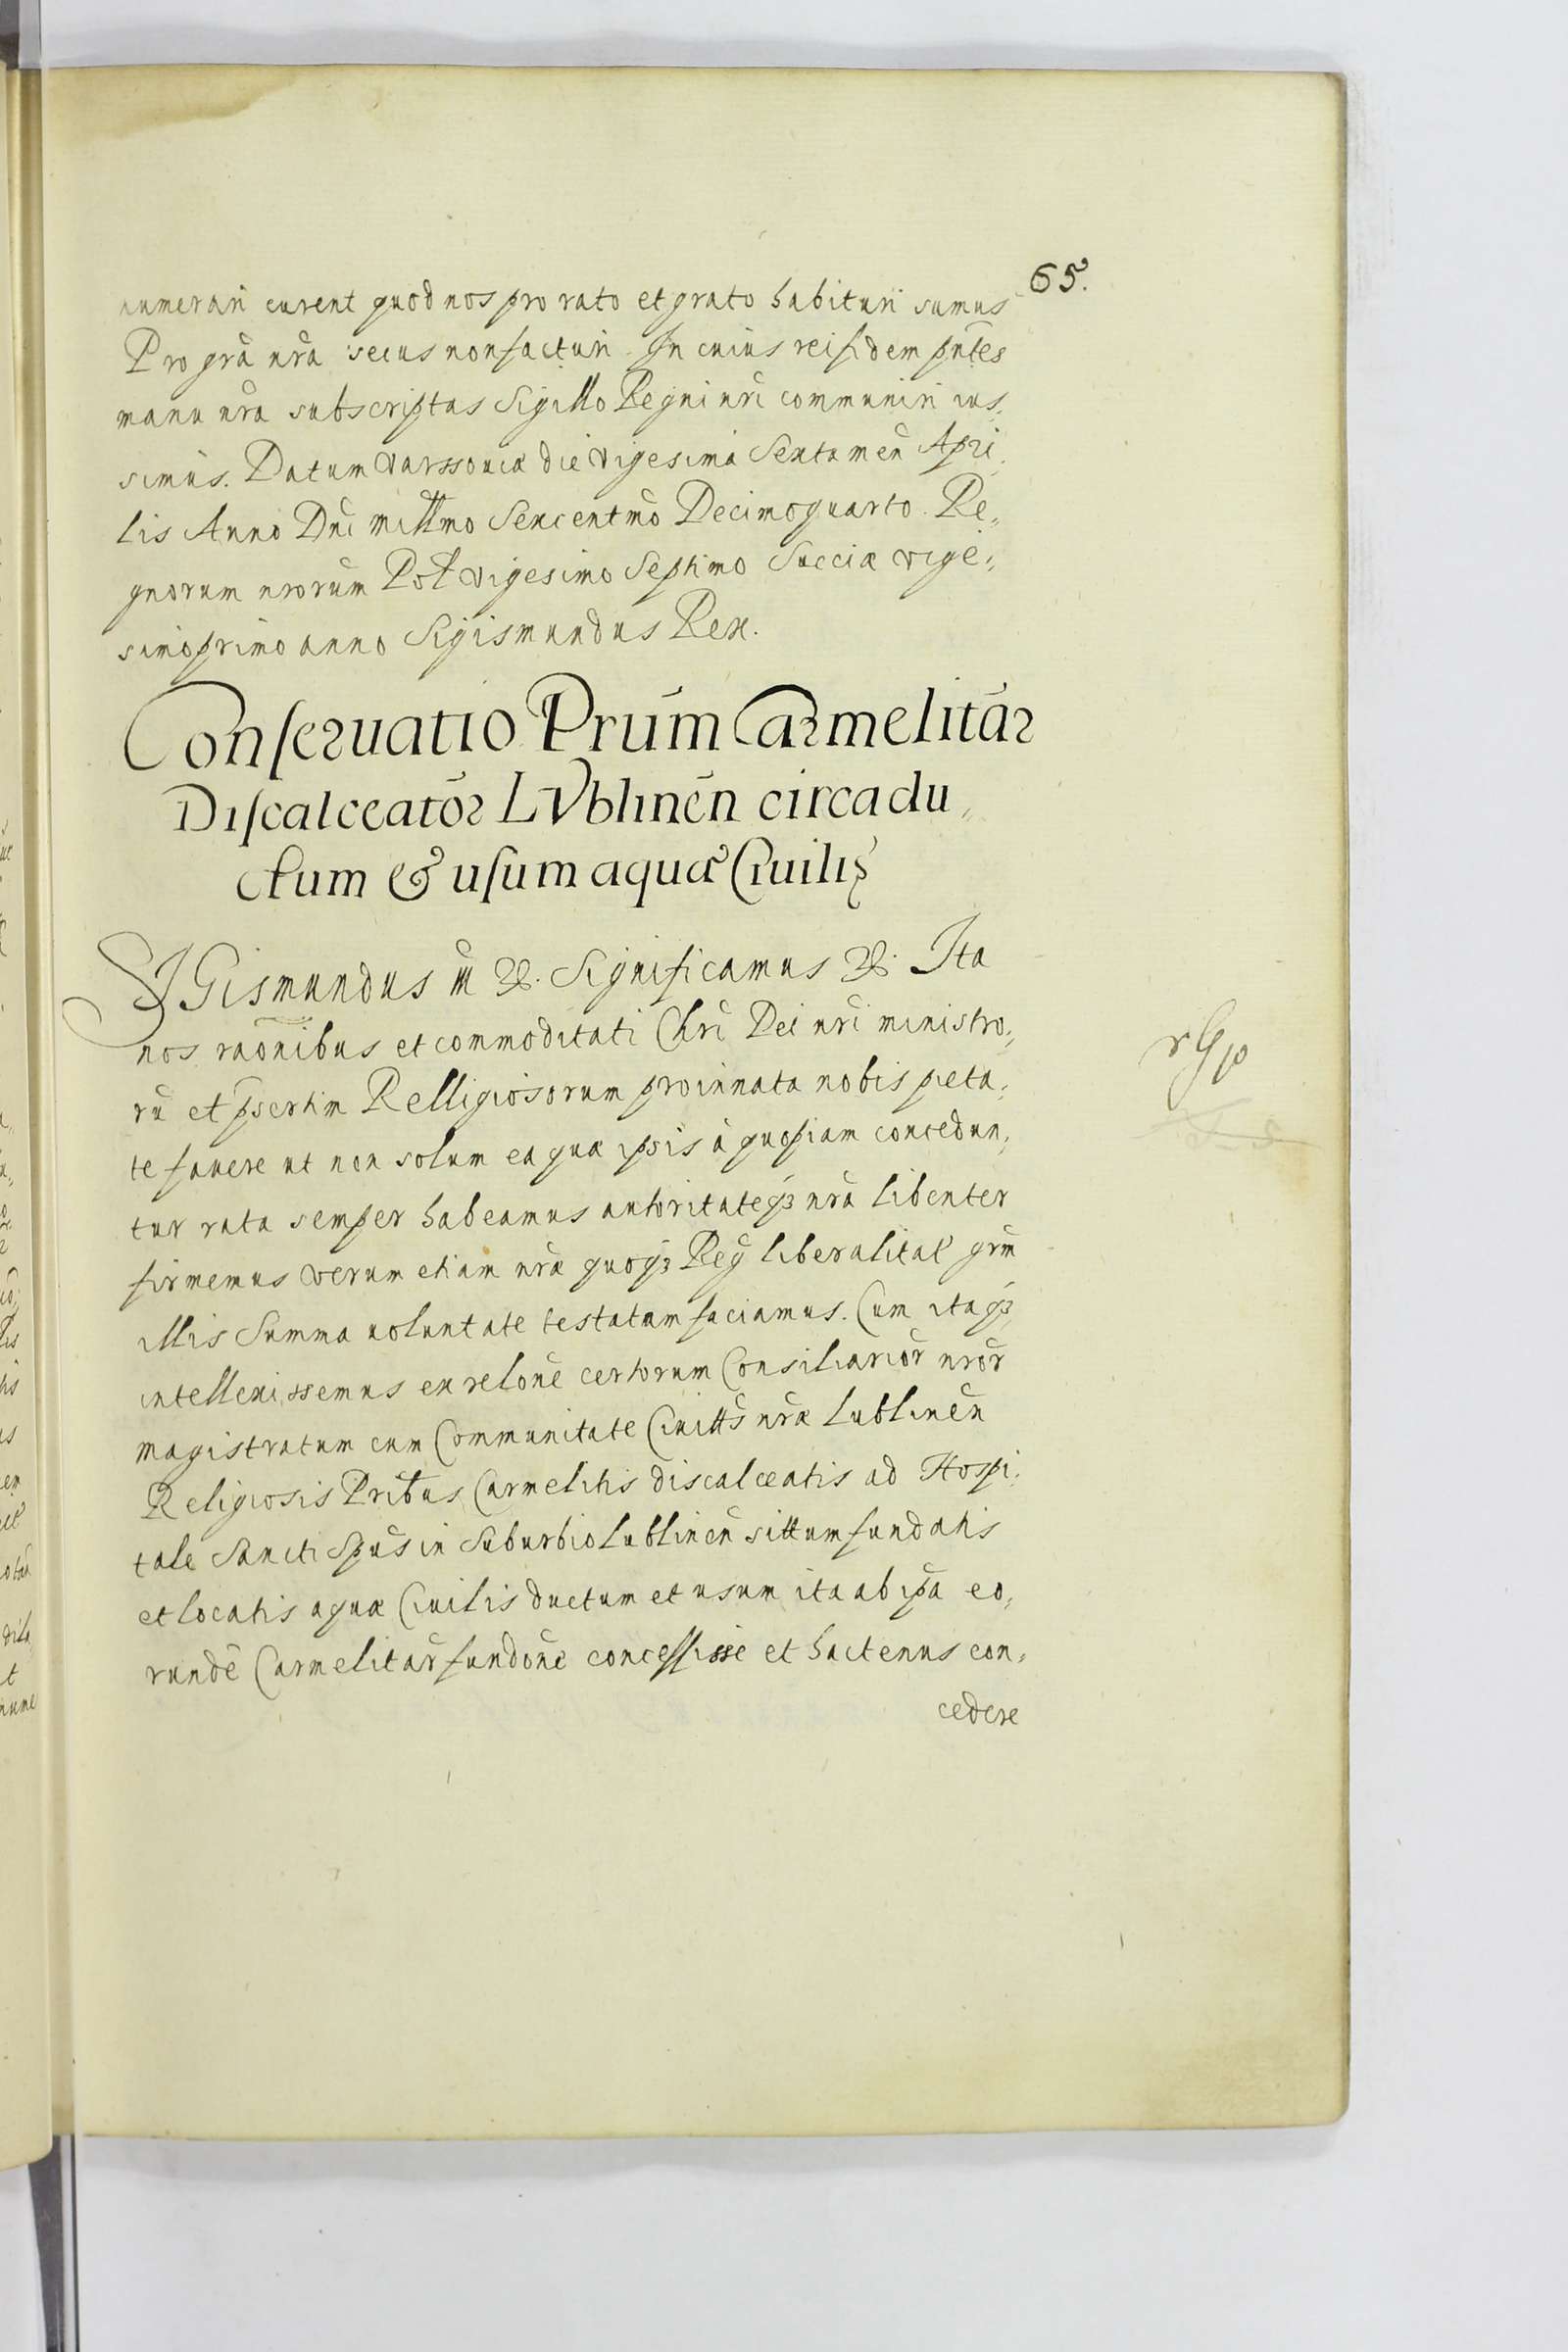 65.
numerari curent quod nos pro rato et grato habituri sumus
Pro grã nrã secus non facturi. In cuius rei fidem pñtes
manu nrã subscriptas Sigillo Regni nrĩ communiri ius„
simus. Datum Varssoviæ die Vigesima Sexta meñ Apri„
lis Anno Dnĩ millmo Sexcentmõ Decimoquarto. Re„
gnorum nrorũm Pol Vigesimo Septimo Sueciæ vige„
simoprimo anno Sigismundus Rex.
Conseruatio Prũm Carmelitãr
Discalceatõr LVblineñ circa du„
ctum & usum aquæ Ciuilis
SIGismundus III &. Significamus &. Ita
nos raõnibus et commoditati Chrĩ Dei nrĩ ministro„
rũ et p̃sertim Relligiosorum pro innata nobis pieta„
te fauere ut non solum ea quæ ipsis à quopiam concedun„
tur rata semper habeamus autoritateqȝ nrã libenter
firmemus verum etiam nræ quoqȝ Reg̃ liberalitat̃ grm̃
illis Summa uoluntate testatam faciamus. Cum itaqȝ
intellexissemus ex relõne certorum Consiliariõr nrõr
magistratum cum Communitate Ciuittĩs nræ Lublineñ
Religiosis Prĩbus Carmelitis discalceatis ad Hospi„
tale Sancti Spũs in Suburbio Lublineñ sittum fundatis
et locatis aquæ Ciuilis ductum et usum ita ab ip̃a eo„
rundẽ Carmelitãr fundõne concessisse et hactenus con„
cedere